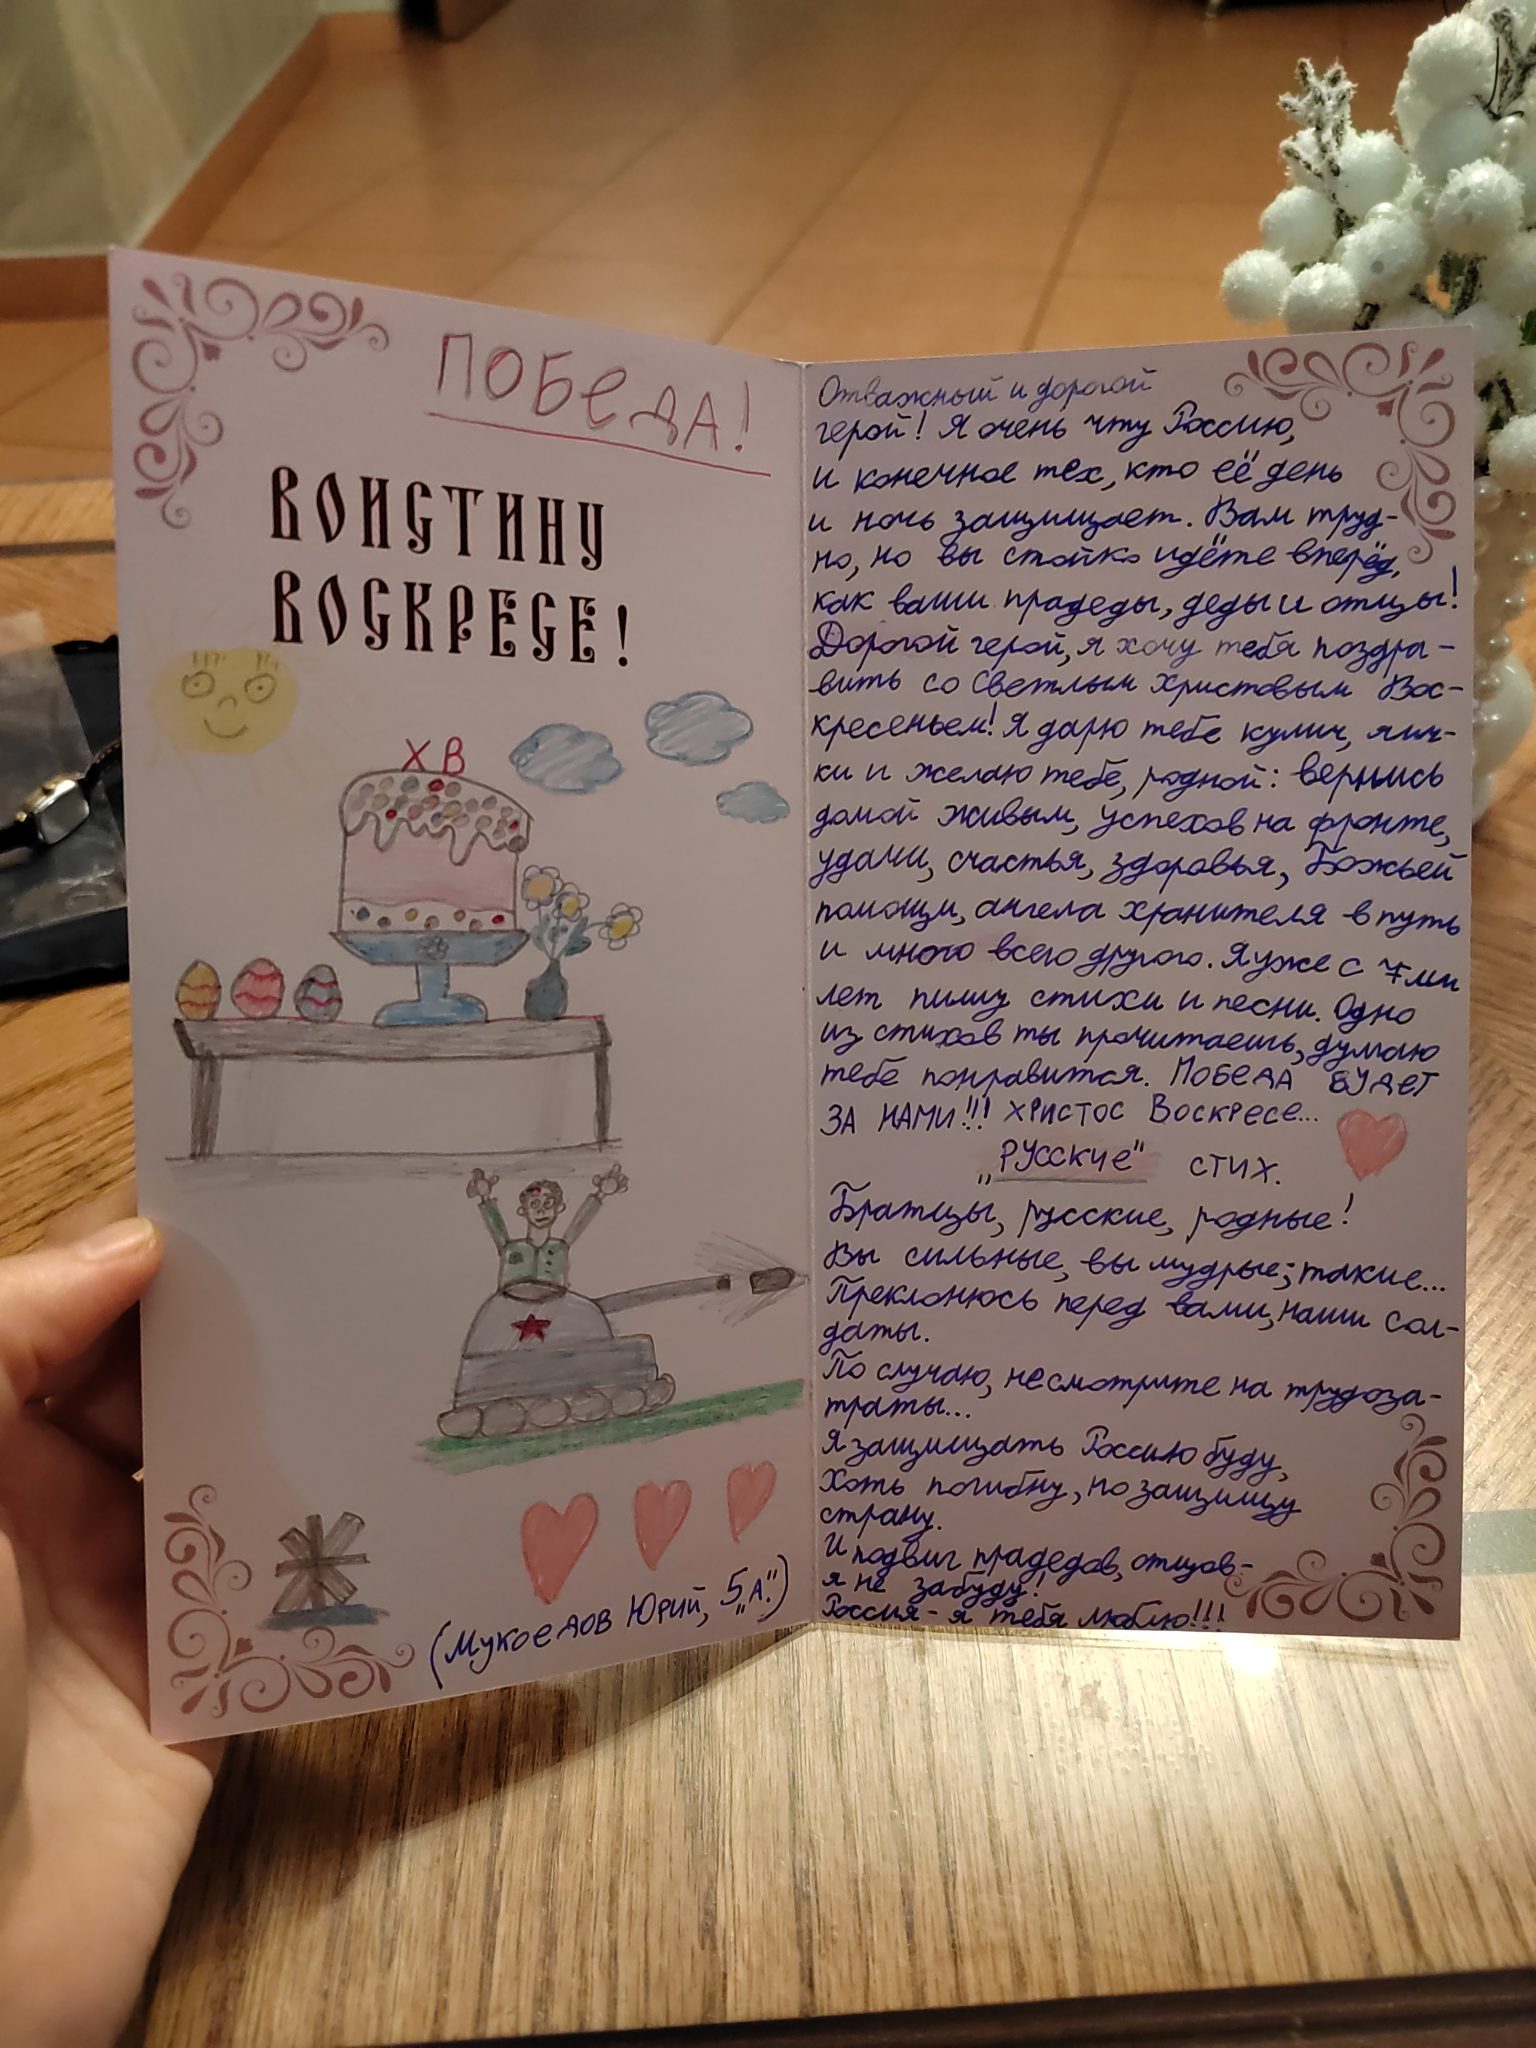 ПОБЕДА!
ВОИСТИНУ
ВОСКРЕСЕ!
ХВ
(Мукоедов Юрий, 5„А”.)
Отважный и дорогой
герой! Я очень чту Россию,
и конечное тех, кто её день
и ночь защищает. Вам труд-
но, но вы стойко идёте вперёд,
как ваши прадеды, деды и отцы!
Дорогой герой, я хочу тебя поздра-
вить со Светлым Христовым Вос-
кресеньем! Я дарю тебе кулич, яич-
ки и желаю тебе, родной: вернись
домой живым, успехов на фронте,
удачи, счастья, здоровья, Божьей
помощи, ангела хранителя в путь
и много всего другого. Я уже с 7ми
лет пишу стихи и песни. Одно
из стихов ты прочитаешь, думаю
тебе понравится. ПОБЕДА БУДЕТ
ЗА НАМИ!!! ХРИСТОС ВОСКРЕСЕ...
„РУССКИЕ” СТИХ.
Братцы, русские, родные!
Вы сильные, вы мудрые; такие...
Преклонюсь перед вами, наши сол-
даты.
По случаю, несмотрите на трудоза-
траты...
Я защищать Россию буду,
Хоть погибну, но защищу
страну.
И подвиг прадедов, отцов-
я не забуду!
Россия - я тебя люблю!!!